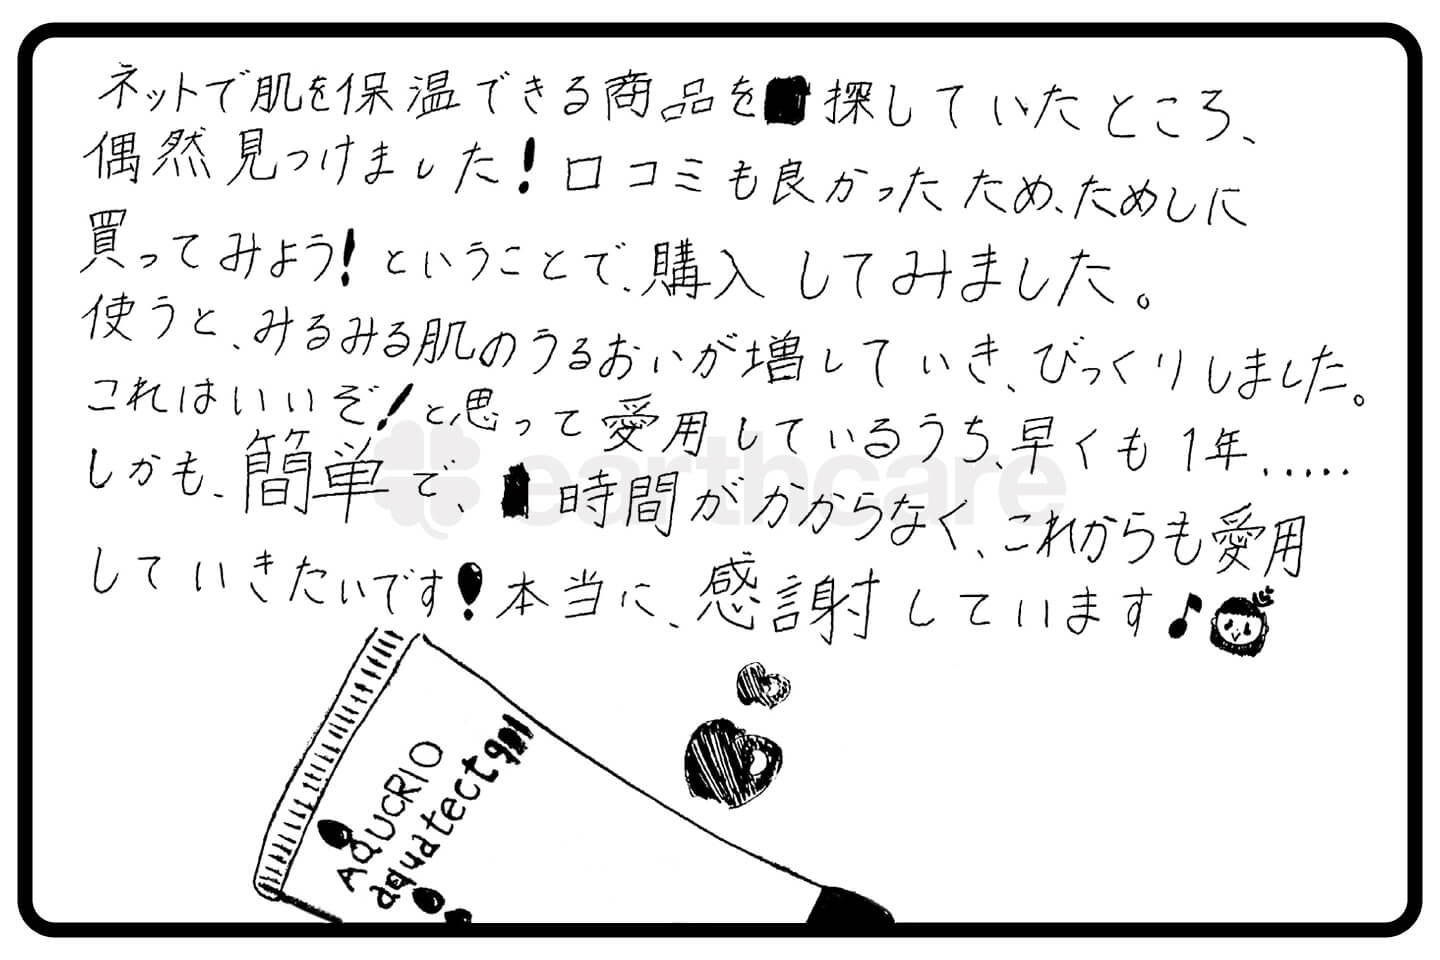 ネットで肌を保温できる商品を探していたところ、
偶然見つけました！口コミも良かったため、ためしに
買ってみよう！ということで、購入してみました。
使うと、みるみる肌のうるおいが増していき、びっくりしました。
これはいいぞ！と思って愛用しているうち、早くも1年.....
しかも、簡単で、時間がかからなく、これからも愛用
していきたいです！本当に、感謝しています♪
earthcare
AQUCRIO
aquatect gel